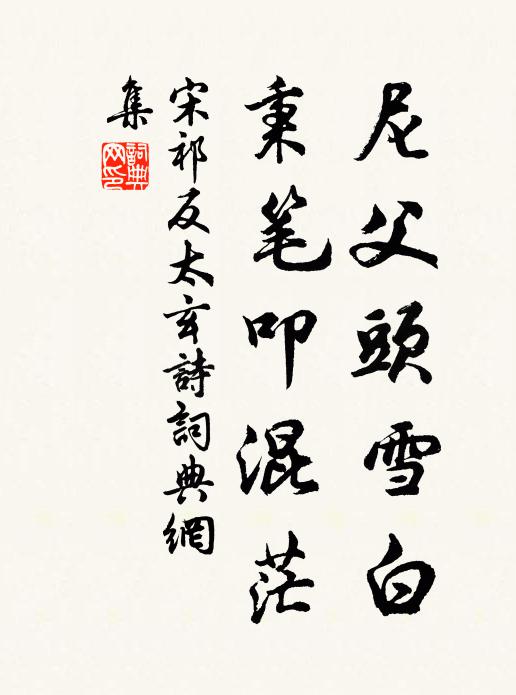 尼父頭雪白
秉笔叩混茫
宋祁反太玄詩詞典網
集
詞典
网印